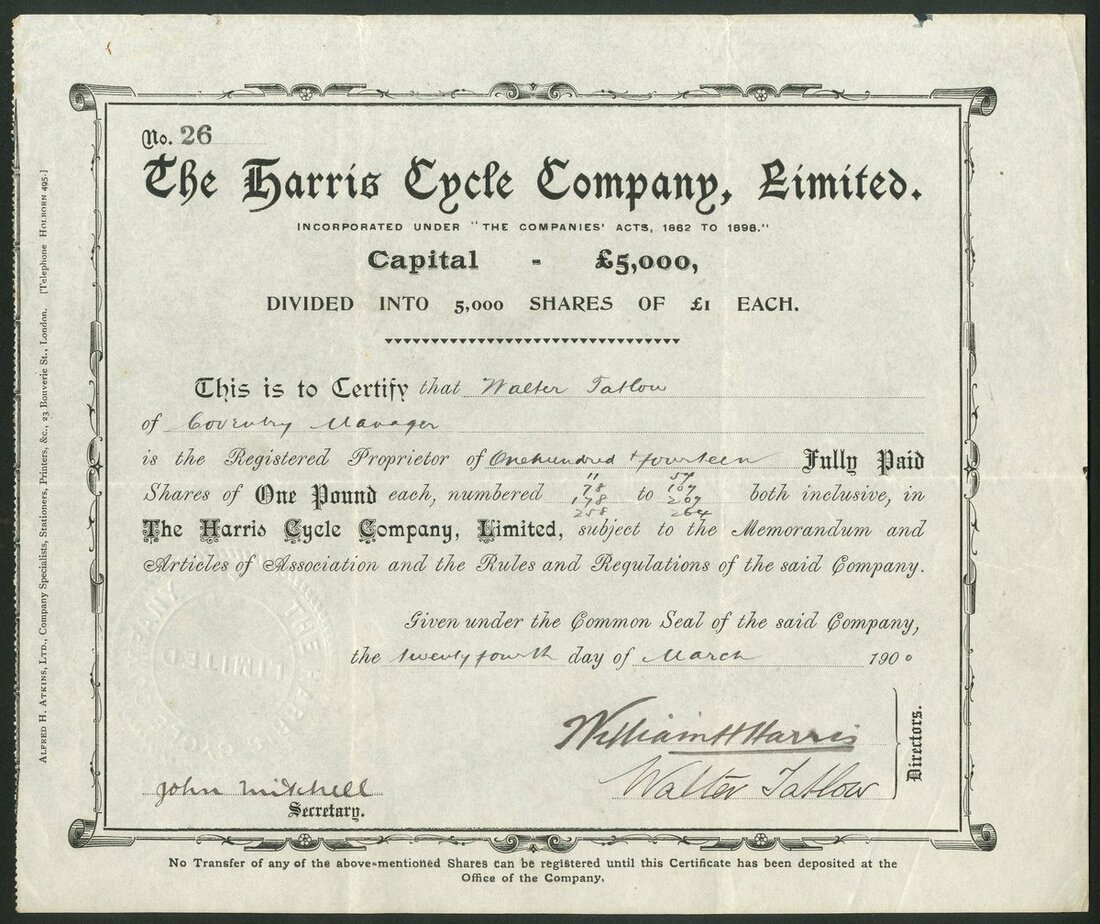 No. 26
The Harris Cycle Company, Limited.
INCORPORATED UNDER "THE COMPANIES' ACTS, 1862 TO 1898."
Capital - £5,000,
DIVIDED INTO 5,000 SHARES OF £1 EACH.
This is to Certify that Walter Tatlow
of Coventry Manager
is the Registered Proprietor of One hundred + fourteen Fully Paid
Shares of One Pound each, numbered 11 78 178 258 to 57 107 207 264 both inclusive, in
The Harris Cycle Company, Limited, subject to the Memorandum and
Articles of Association and the Rules and Regulations of the said Company.
Given under the Common Seal of the said Company,
the twenty fourth day of March 1900
William H Harris
Walter Tatlow
Directors.
John Mitchell
Secretary.
THE HARRIS CYCLE COMPANY
LIMITED
No Transfer of any of the above-mentioned Shares can be registered until this Certificate has been deposited at the
Office of the Company.
ALFRED H. ATKINS, LTD., Company Specialists, Stationers, Printers, &c., 23 Bouverie St., London. [Telephone HOLBORN 495.]